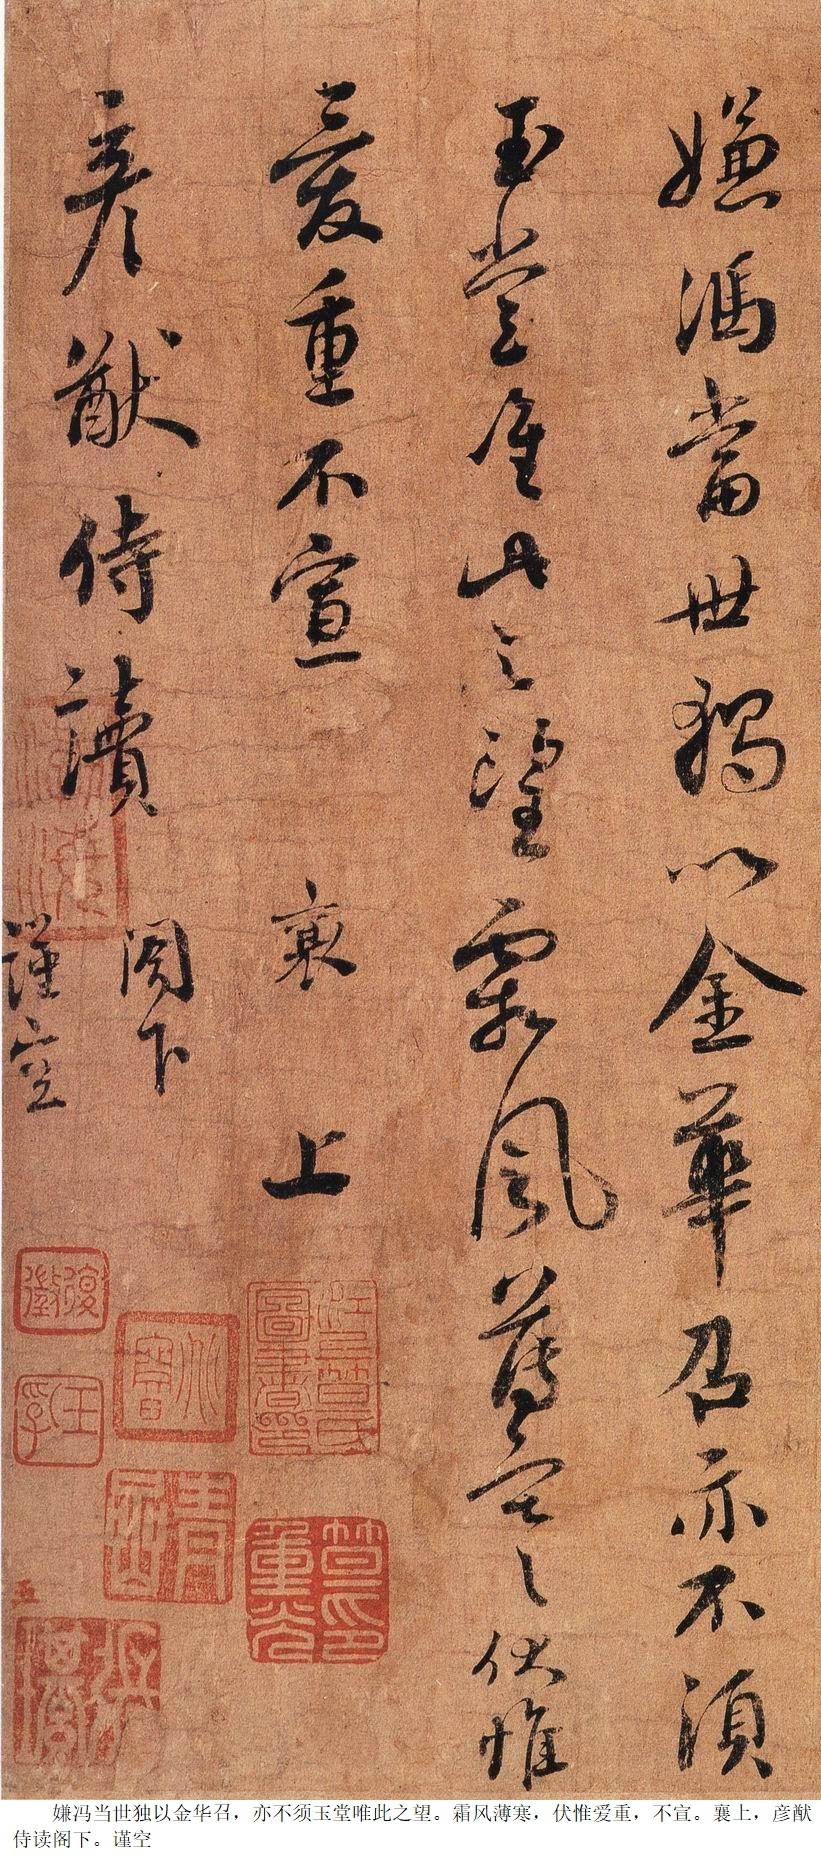 嫌馮當世獨以金華召亦不須
玉堂唯此之望霜風薄寒伏惟
愛重不宣 襄 上
彥猷侍讀 閣下
謹空
江上笪氏圖書印
笪印重光
嫌冯当世独以金华召，亦不须玉堂唯此之望。霜风薄寒，伏惟爱重，不宣。襄上，彦猷
侍读阁下。谨空